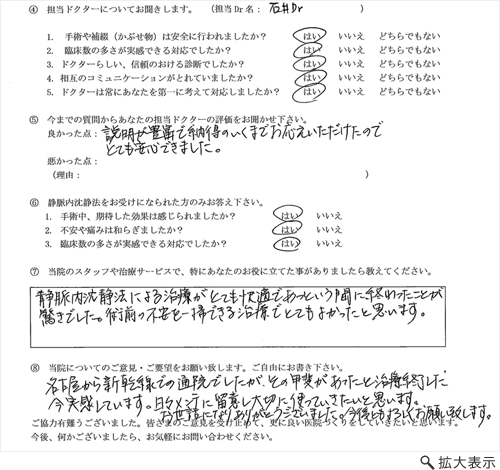 ④ 担当ドクターについてお聞きします。 (担当 Dr 名： 石井Dr )
1. 手術や補綴（かぶせ物）は安全に行われましたか？ はい いいえ どちらでもない
2. 臨床数の多さが実感できる対応でしたか？ はい いいえ どちらでもない
3. ドクターらしい、信頼のおける診断でしたか？ はい いいえ どちらでもない
4. 相互のコミュニケーションがとれていましたか？ はい いいえ どちらでもない
5. ドクターは常にあなたを第一に考えて対応しましたか？ はい いいえ どちらでもない
⑤ 今までの質問からあなたの担当ドクターの評価をお聞かせ下さい。
良かった点： 説明が豊富で納得のいくまでお応えいただけたので
とても安心できました。
悪かった点：
（理由： ）
⑥ 静脈内沈静法をお受けになられた方のみお答え下さい。
1. 手術中、期待した効果は感じられましたか？ はい いいえ
2. 不安や痛みは和らぎましたか？ はい いいえ
3. 臨床数の多さが実感できる対応でしたか？ はい いいえ
⑦ 当院のスタッフや治療サービスで、特にあなたのお役に立てた事がありましたら教えてください。
静脈内沈静法による治療がとても快適であっという間に終わったことが
驚きでした。術前の不安を一掃できる治療でとてもよかったと思います。
⑧ 当院についてのご意見・ご要望をお願い致します。ご自由にお書き下さい。
名古屋から新幹線での通院でしたが、その甲斐があったと治療終了した
今実感しています。日々メンテに留意し大切に使っていきたいと思います。
お世話になりありがとうございました。今後ともよろしくお願い致します。
ご協力有難うございました。皆さまのご意見を受け止めて、更に良い医院づくりをしていきたいと思います。
今後、何かございましたら、お気軽にお問い合わせください。
拡大表示